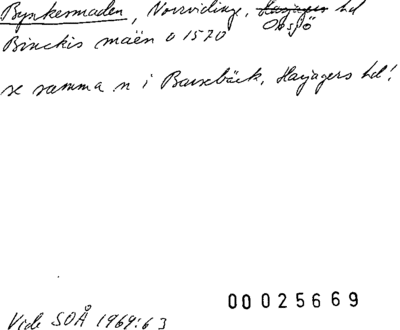 Bynkesmaden, Norrvidinge, Harjagers hd
Onsjö
Binckis maën o 1570
se samma n i Barsebäck, Harjagers hd!
00 025669
Vide SOÅ 1969:63